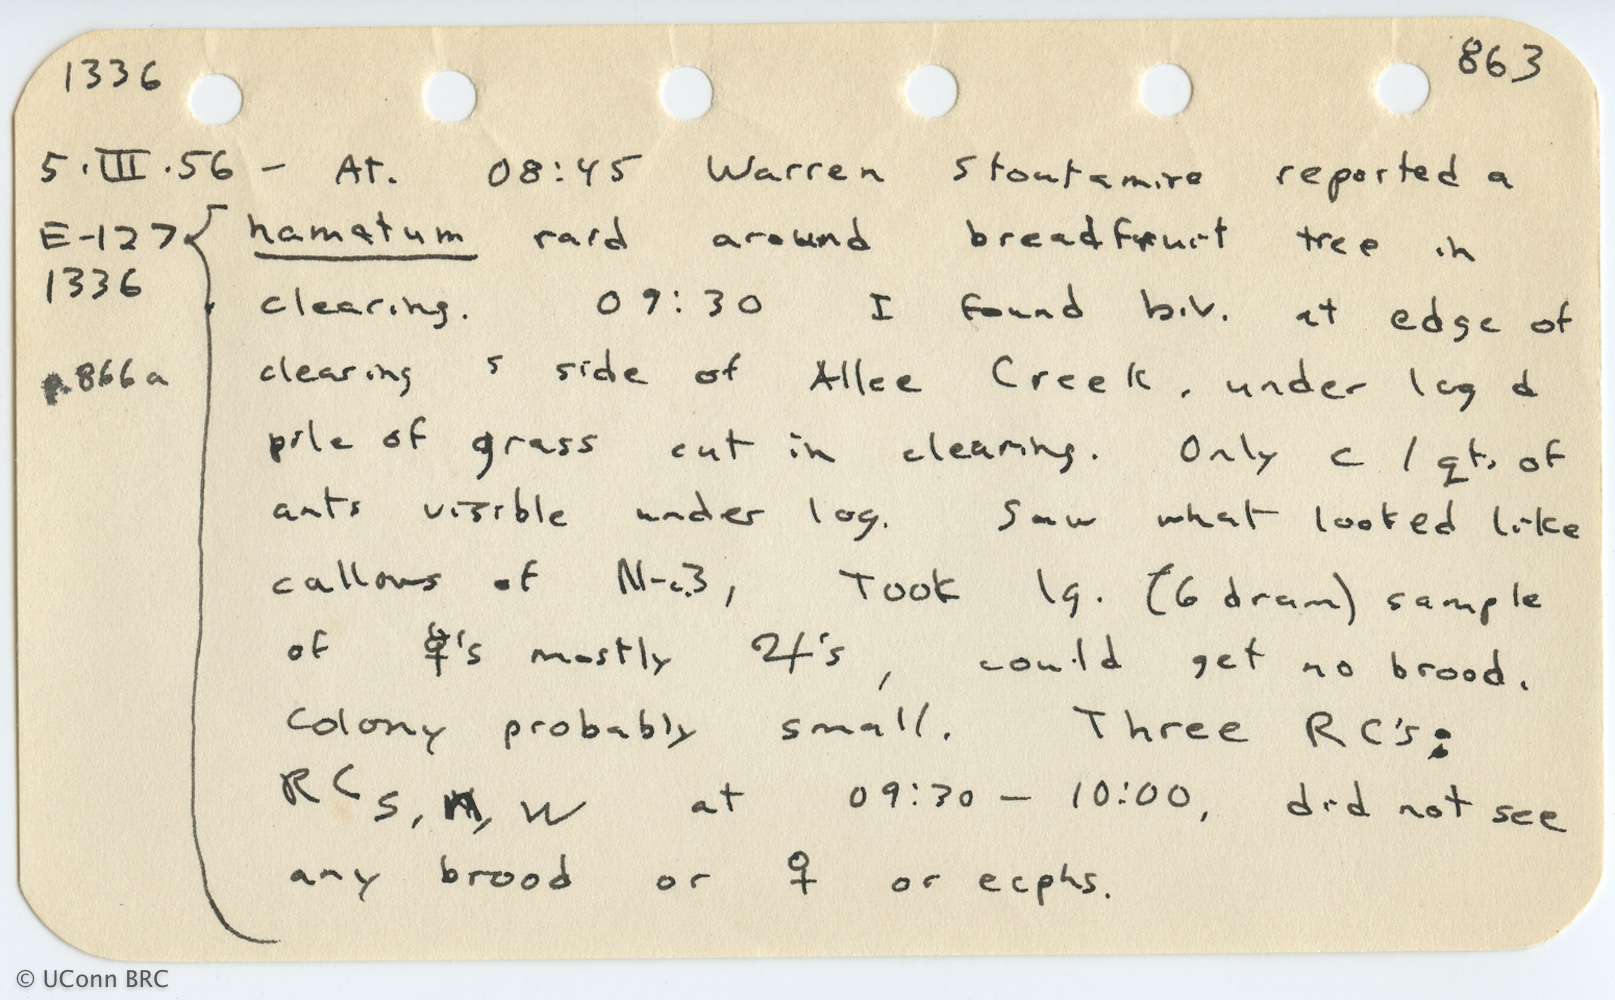 1336
863
5.III.56 - At. 08:45 Warren Stoutamire reported a
E-127 hamatum raid around breadfruit tree in
1336
clearing. 09:30 I found biv. at edge of
p.866a
clearing S side of Allee Creek, under log &
pile of grass cut in clearing. Only c 1 qt. of
ants visible under log. Saw what looked like
callows of N-c.3, Took lg. (6 dram) sample
of ☿'s mostly ♃'s, could get no brood.
Colony probably small. Three RC's:
RC S, N, W at 09:30 - 10:00, did not see
any brood or ♀ or ecphs.
© UConn BRC